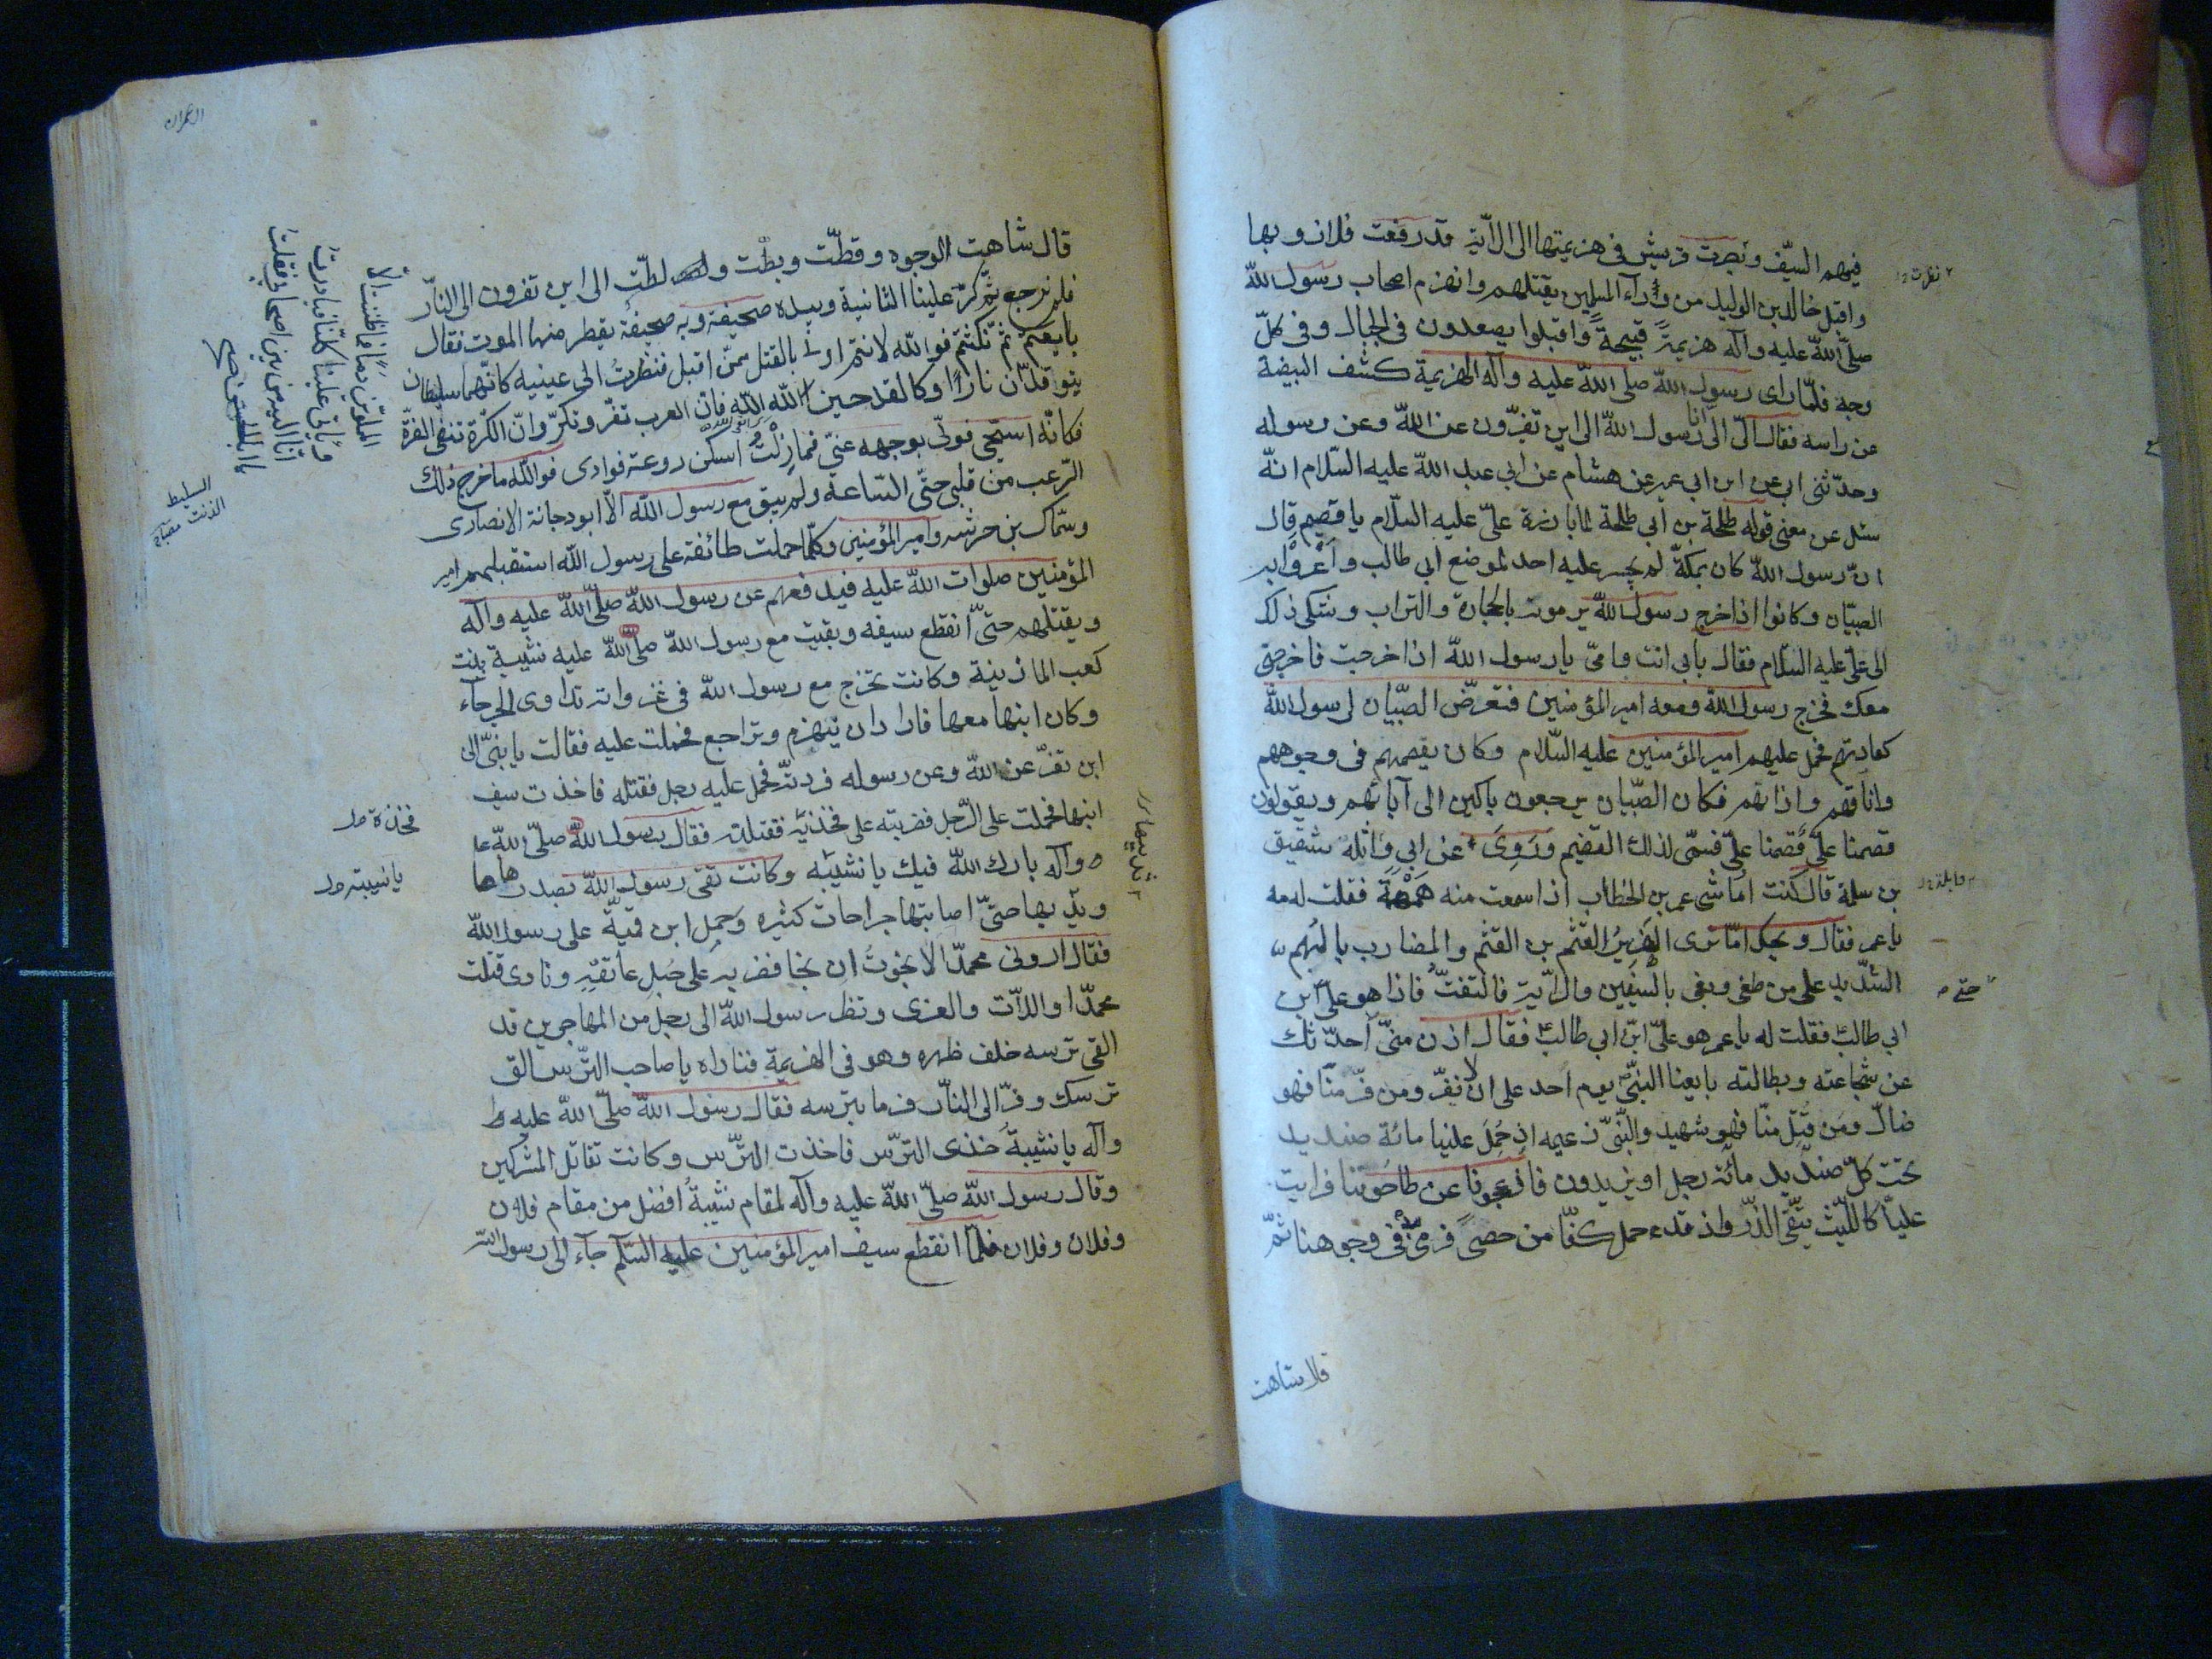 فيهم السّيف ونصرت قريش في هزيمتها الى الرّاية قد رفعت فلاذوبها
واقبل خالد بن الوليد من ورآء المسلمين يقتلهم وانهزم اصحاب رسول الله
صلّى الله عليه وآله هزيمة قبيحةً واقبلوا يصعدون في الجبال وفي كلّ
وجه فلمّا رأى رسول الله صلى الله عليه وآله الهزيمة كشف البيضة
عن راسه فقال الىّ الى انا رسول الله الى اين تفرّون عن الله وعن رسوله
وحدّثنى ابى عن ابن ابى عمير عن هشام عن ابي عبد الله عليه السّلام انّه
سئل عن معنى قوله طلحة بن ابي طلحة لما بارزه علىّ عليه السّلام يا قضيم قال
انّ رسول الله كان بمكّة لم يجسر عليه احد لموضع ابي طالب واغروا به
الصبيان وكانوا اذا خرج رسول الله يرمونه بالحجارة والتراب وشكى ذلك
الى علىّ عليه السّلام فقال بابى انت وامىّ يا رسول الله اذا خرجت فاخرجنى
معك فخرج رسول الله ومعه امير المؤمنين فتعرّض الصّبيان لرسول الله
كعادتهم فحمل عليهم امير المؤمنين عليه السّلام وكان يقضمهم في وجوههم
وانافهم واذانهم فكان الصّبيان يرجعون باكين الى آبائهم ويقولون
قضمنا علىّ قضمنا علىّ فسمّى لذلك القضيم وروى عن ابي واثله شقيق
بن سلمة قال كنت اماشى عمر بن الخطّاب اذا سمعت منه همهمة فقلت له مه
يا عمر فقال ويحك اما ترى الهزبر القثم بن القثم والمضارب بالبهم
الشّديد على من طغى وبغى بالسّيفين والرّاية فالتفتّ فاذا هو علىّ ابن
ابي طالب فقلت له يا عمر هو علىّ ابن ابي طالب فقال اذن منىّ احدّثك
عن شجاعته وبطالته بايعنا النبىّ يوم احد على ان لا نفرّ ومن فرّ منّا فهو
ضالّ ومن قتل منّا فهو شهيد والنّبىّ زعيمه اذ حمل علينا مائة صنديد
تحت كلّ صنديد مائة رجل او يزيدون فازعجونا عن طاحونتنا فرايت
عليّا كاللّيث يتّقى الذّرّ واذ قد حمل كفّا من حصىً فرمى في وجوهنا ثمّ
نظرت
حتى
قال شاهت
قال شاهت الوجوه وقطّت وبطّت ولطّت الى اين تفرون الى النّار
فلم نرجع ثمّ كرّ علينا الثانية وبيده صحيفة وبه صحيفة يقطر منها الموت فقال
بايعتم ثمّ نكثتم فوالله لانتم اولى بالقتل ممّن اقبل فنظرت الى عينيه كانّهما سليطان
يتوقدّان نارًا وكالقدحين الله الله فان العرب تفرّ وتكرّ وانّ الكرّة تنفى الفرّة
فكانّه استحى فولّى بوجهه عنىّ فما زلت اسكن روعة فوادى فوالله ما خرج ذلك
الرّعب من قلبى حتّى السّاعة ولم يبق مع رسول الله الّا ابو دجانة الانصارى
وسمّاك بن حرشه وامير المؤمنين وكلّما حملت طائفة على رسول الله استقبلهم امير
المؤمنين صلوات الله عليه فيدفعهم عن رسول الله صلّى الله عليه وآله
ويقتلهم حتىّ انقطع سيفه وبقيت مع رسول الله صلّى الله عليه نشيبة بنت
كعب المازنية وكانت تخرج مع رسول الله في غزواته تداوى الجرحآء
وكان ابنها معها فاراد ان ينهزم ويتراجع فحملت عليه فقالت يا بنىّ الى
اين تفرّ عن الله وعن رسوله فردتّه فحمل عليه رجل فقتله فاخذت سيف
ابنها فحملت على الرّجل فضربته على فخذيه فقتلته فقال رسول الله صلّى الله عل
وآله بارك الله فيك يا نشيبه وكانت تقى رسول الله بصدرها
ويديها حتىّ اصابتها جراحات كثيره وحمل ابن قميّة على رسول الله
فقال ارونى محمّدا لا نجوت ان نجا فضربه على حبل عاتقه ونادى قتلت
محمّدا واللاّت والعزى ونظر رسول الله الى رجل من المهاجرين قد
القى ترسه خلف ظهره وهو في الهزيمة فناداه يا صاحب الترّس الق
ترسك وفرّ الى النّار فرما بترسه فقال رسول الله صلّى الله عليه
وآله يا نشيبة خذى الترّس فاخذت الترّس وكانت تقاتل المشركين
وقال رسول الله صلّى الله عليه وآله لمقام نشيبة افضل من مقام فلان
وفلان وفلان فلمّا انقطع سيف امير المؤمنين عليه السّلم جآء الى رسول الله
العمران
السليط
الذيت
يا نسيبة